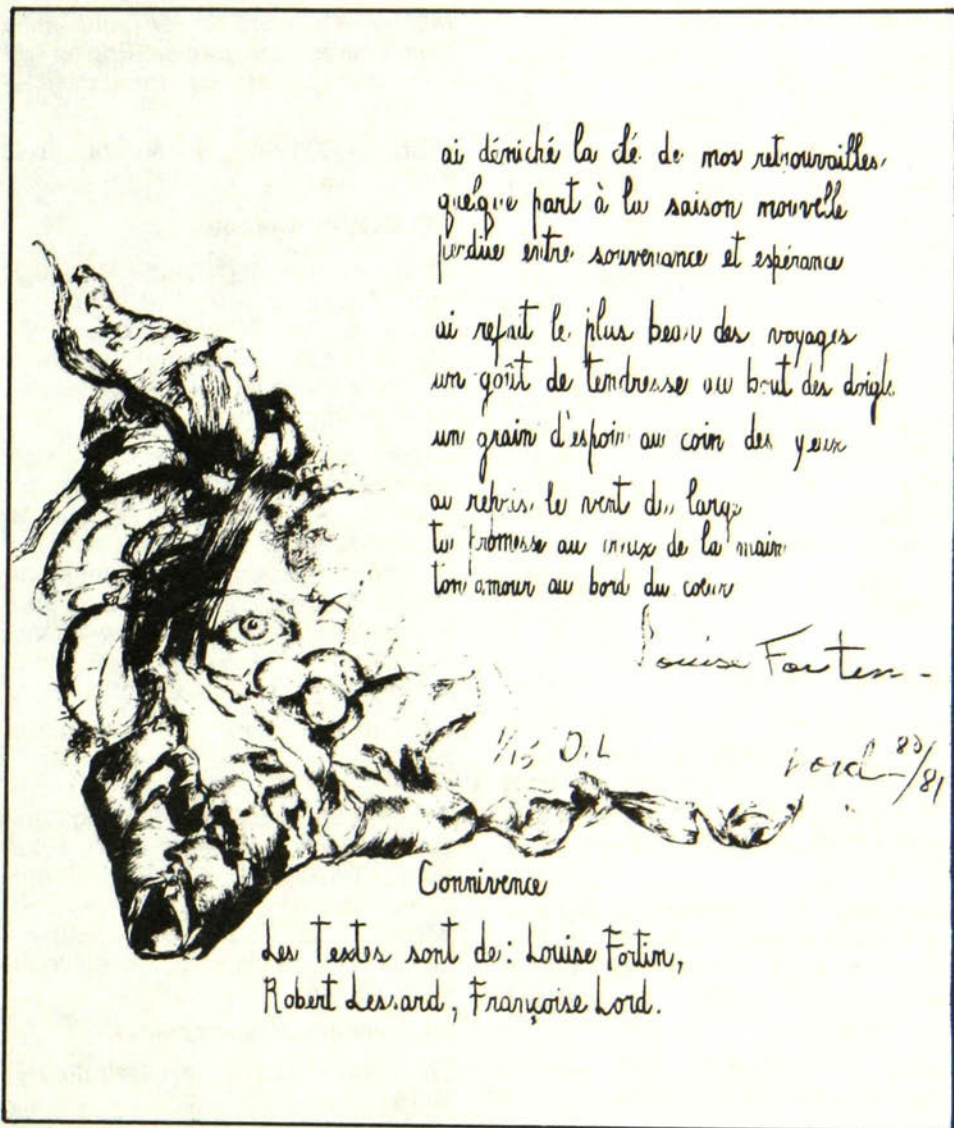 ai déniché la clé de nos retrouvailles
quelque part à la saison nouvelle
perdue entre souvenance et espérance
ai refait le plus beau des voyages
un goût de tendresse au bout des doigts
un grain d'espoir au coin des yeux
ai repris le vent du large
ta promesse au creux de la main
ton amour au bord du cœur
Louise Fortin
1/15 D.L Lord 80/81
Connivence
Les Textes sont de : Louise Fortin,
Robert Lessard, Françoise Lord.